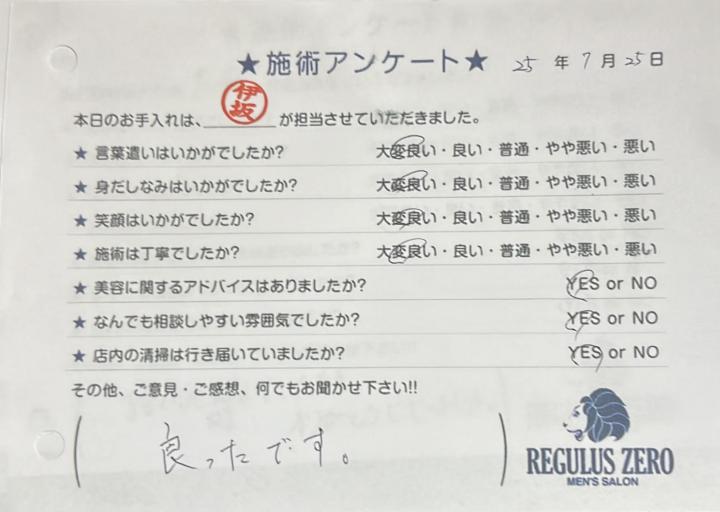 ★施術アンケート★ 25年7月25日
本日のお手入れは、伊坂が担当させていただきました。
★ 言葉遣いはいかがでしたか? 大変良い・良い・普通・やや悪い・悪い
★ 身だしなみはいかがでしたか? 大変良い・良い・普通・やや悪い・悪い
★ 笑顔はいかがでしたか? 大変良い・良い・普通・やや悪い・悪い
★ 施術は丁寧でしたか? 大変良い・良い・普通・やや悪い・悪い
★ 美容に関するアドバイスはありましたか? YES or NO
★ なんでも相談しやすい雰囲気でしたか? YES or NO
★ 店内の清掃は行き届いていましたか? YES or NO
その他、ご意見・ご感想、何でもお聞かせ下さい!!
(良ったです。)
REGULUS ZERO
MEN'S SALON